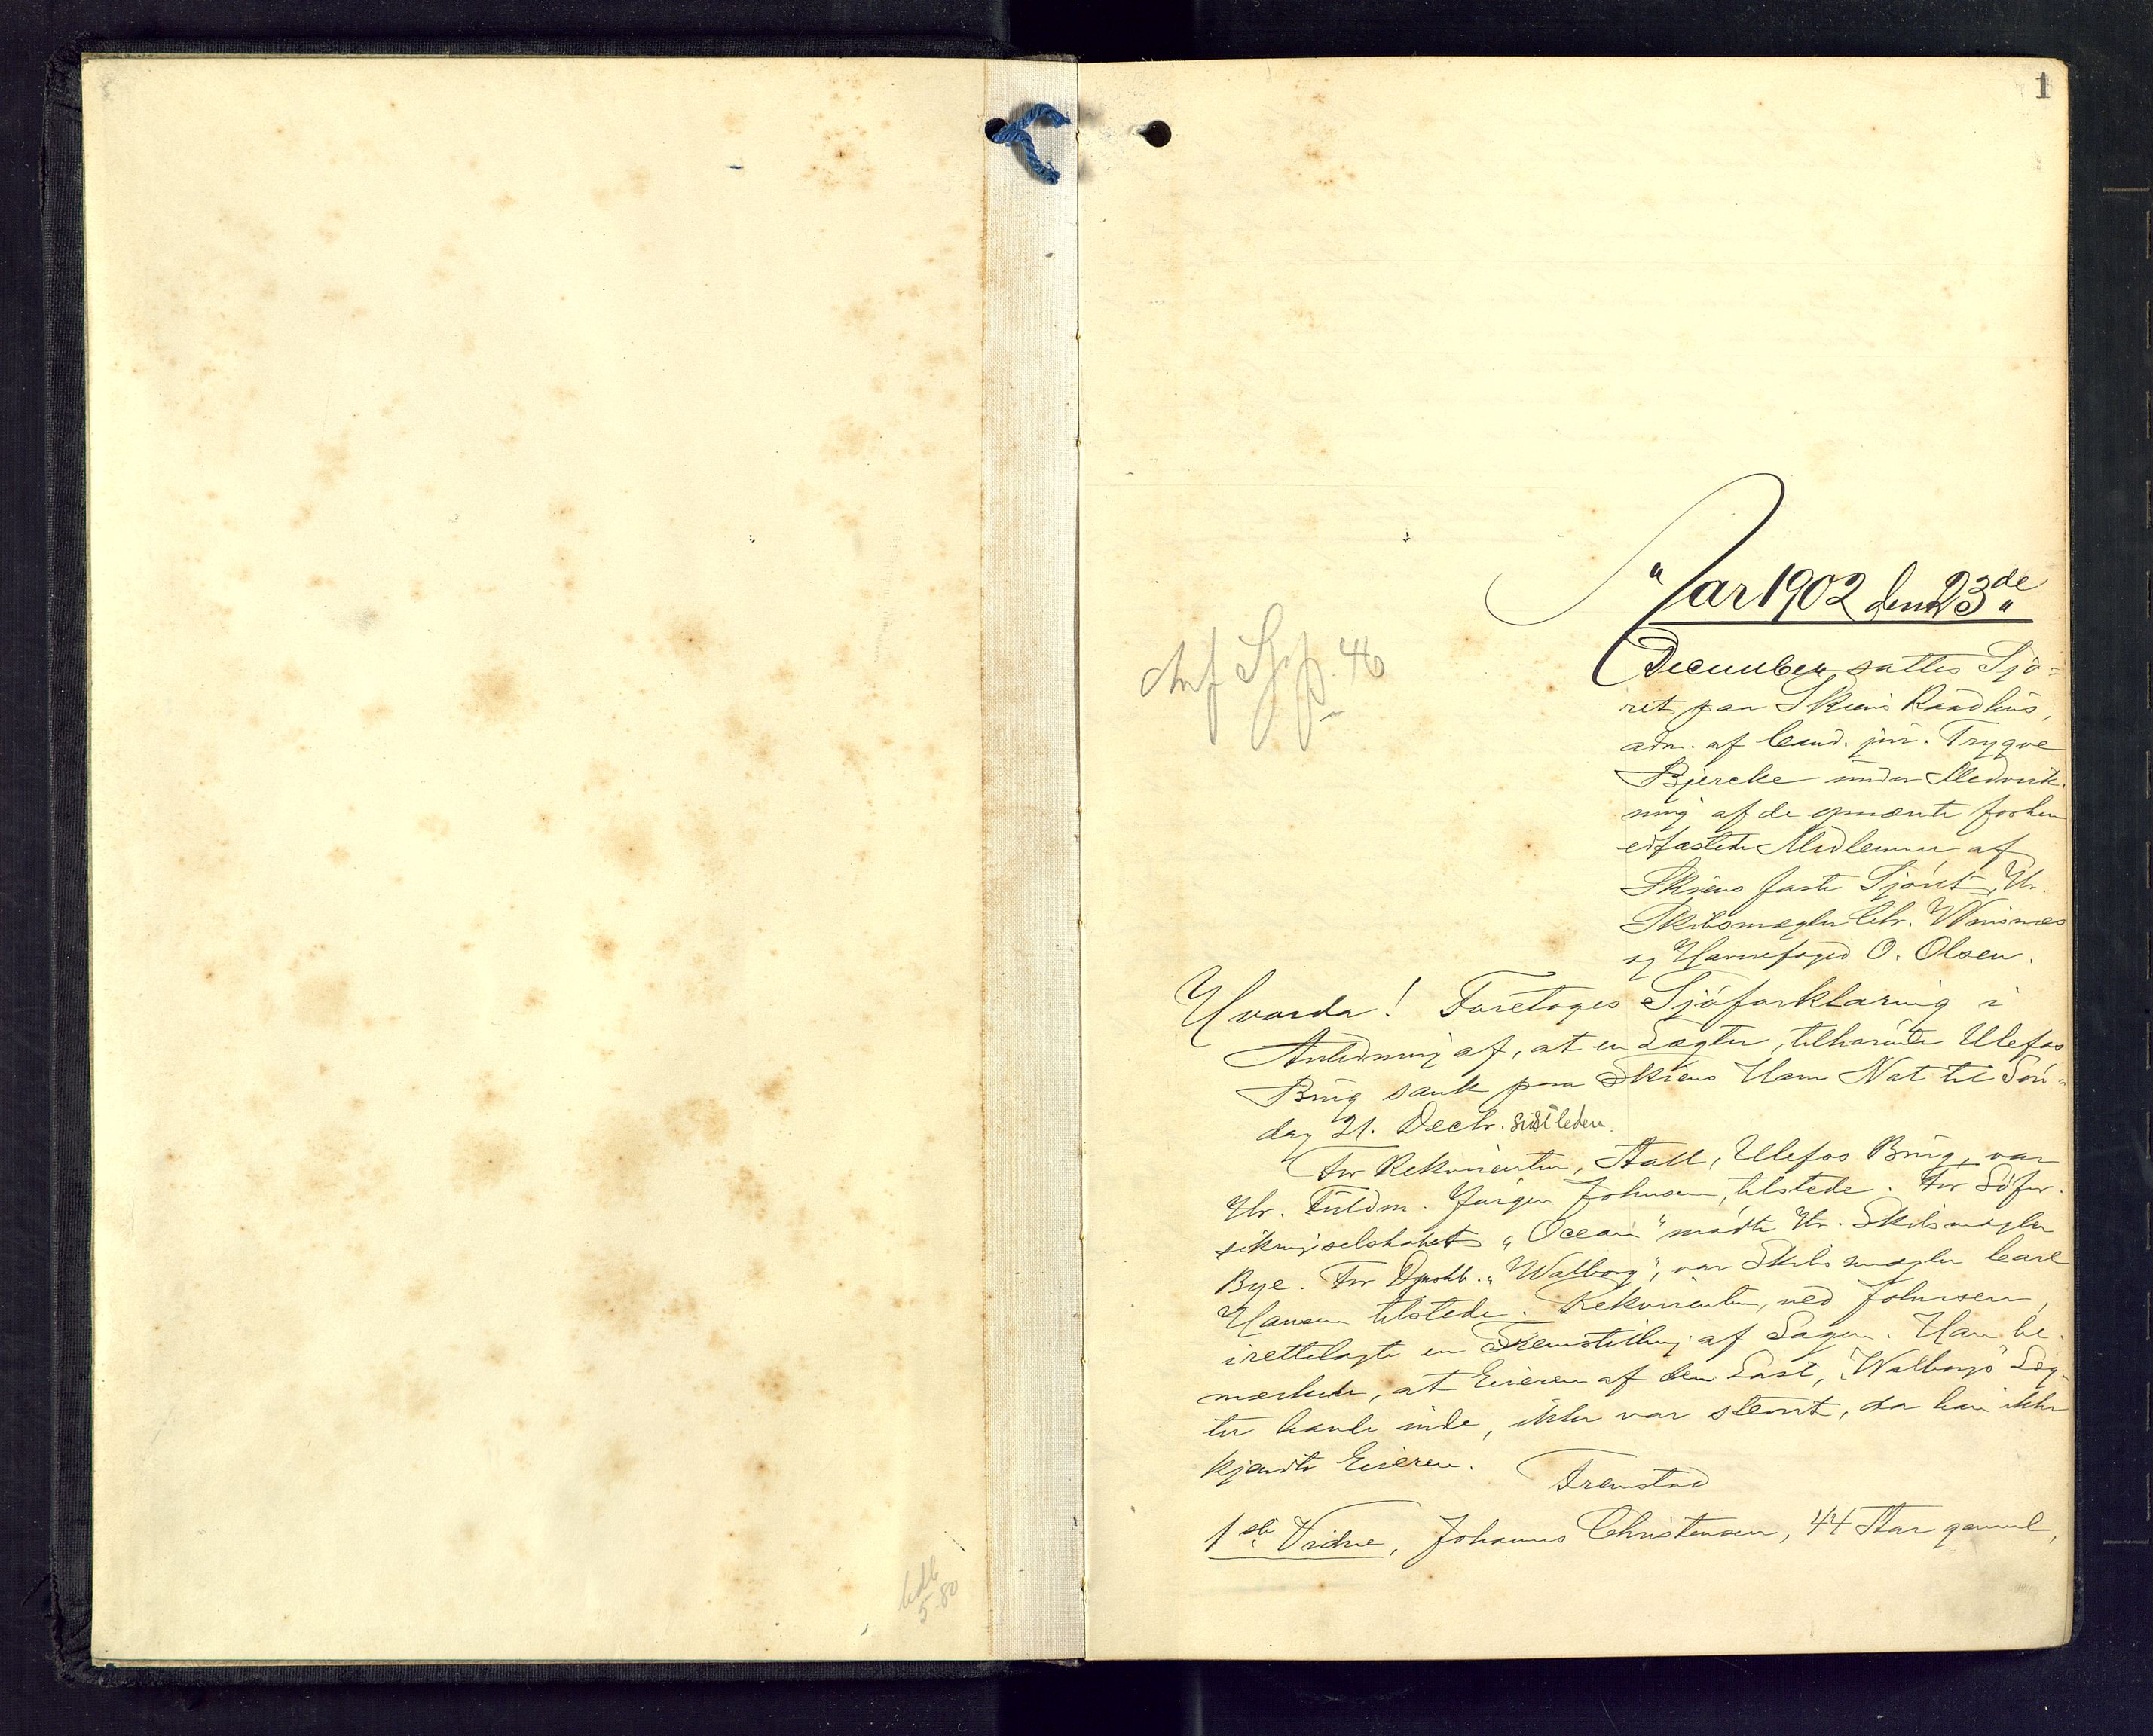 1
Aar 1902 den 23de
December sattes Sjö=
ret paa Skiens Raadhus,
adm. af Cand. jur. Trygve
Bjercke under Medvirk-
ning af de opnævnte forhen
edfæstede Medlemmer af
Skiens faste Sjöret, Hr.
Skibsmægler Chr. Winsnæs
og Havnefoged O. Olsen.
Anf Sjp. 46
Hvorda! Foretoges Sjöforklaring i
Anledning af, at en Lægter, tilhörende Ulefos
Brug sank paa Skiens Havn Nat til Sön-
dag 21. Decbr. sidstleden.
For Rekvirenten, Aall, Ulefos Brug, var
Hr. Fuldm. Jörgen Johnsen, tilstede. For Söfor-
sikringsselskabet "Ocean" mödte Hr. Skibsmægler
Bye. For "Walborg", var Skibsmægler Carl
Hansen tilstede. Rekvirenten, ved Johnsen,
irettelagte en Fremstilling af Sagen. Han be-
mærkede, at Eieren af den Last, "Walborgs" Læg-
ter havde inde, ikke var stevnt, da han ikke
kjendte Eieren.
Fremstod
1ste Vidne, Johannes Christensen, 44 Aar gammel,
5-80